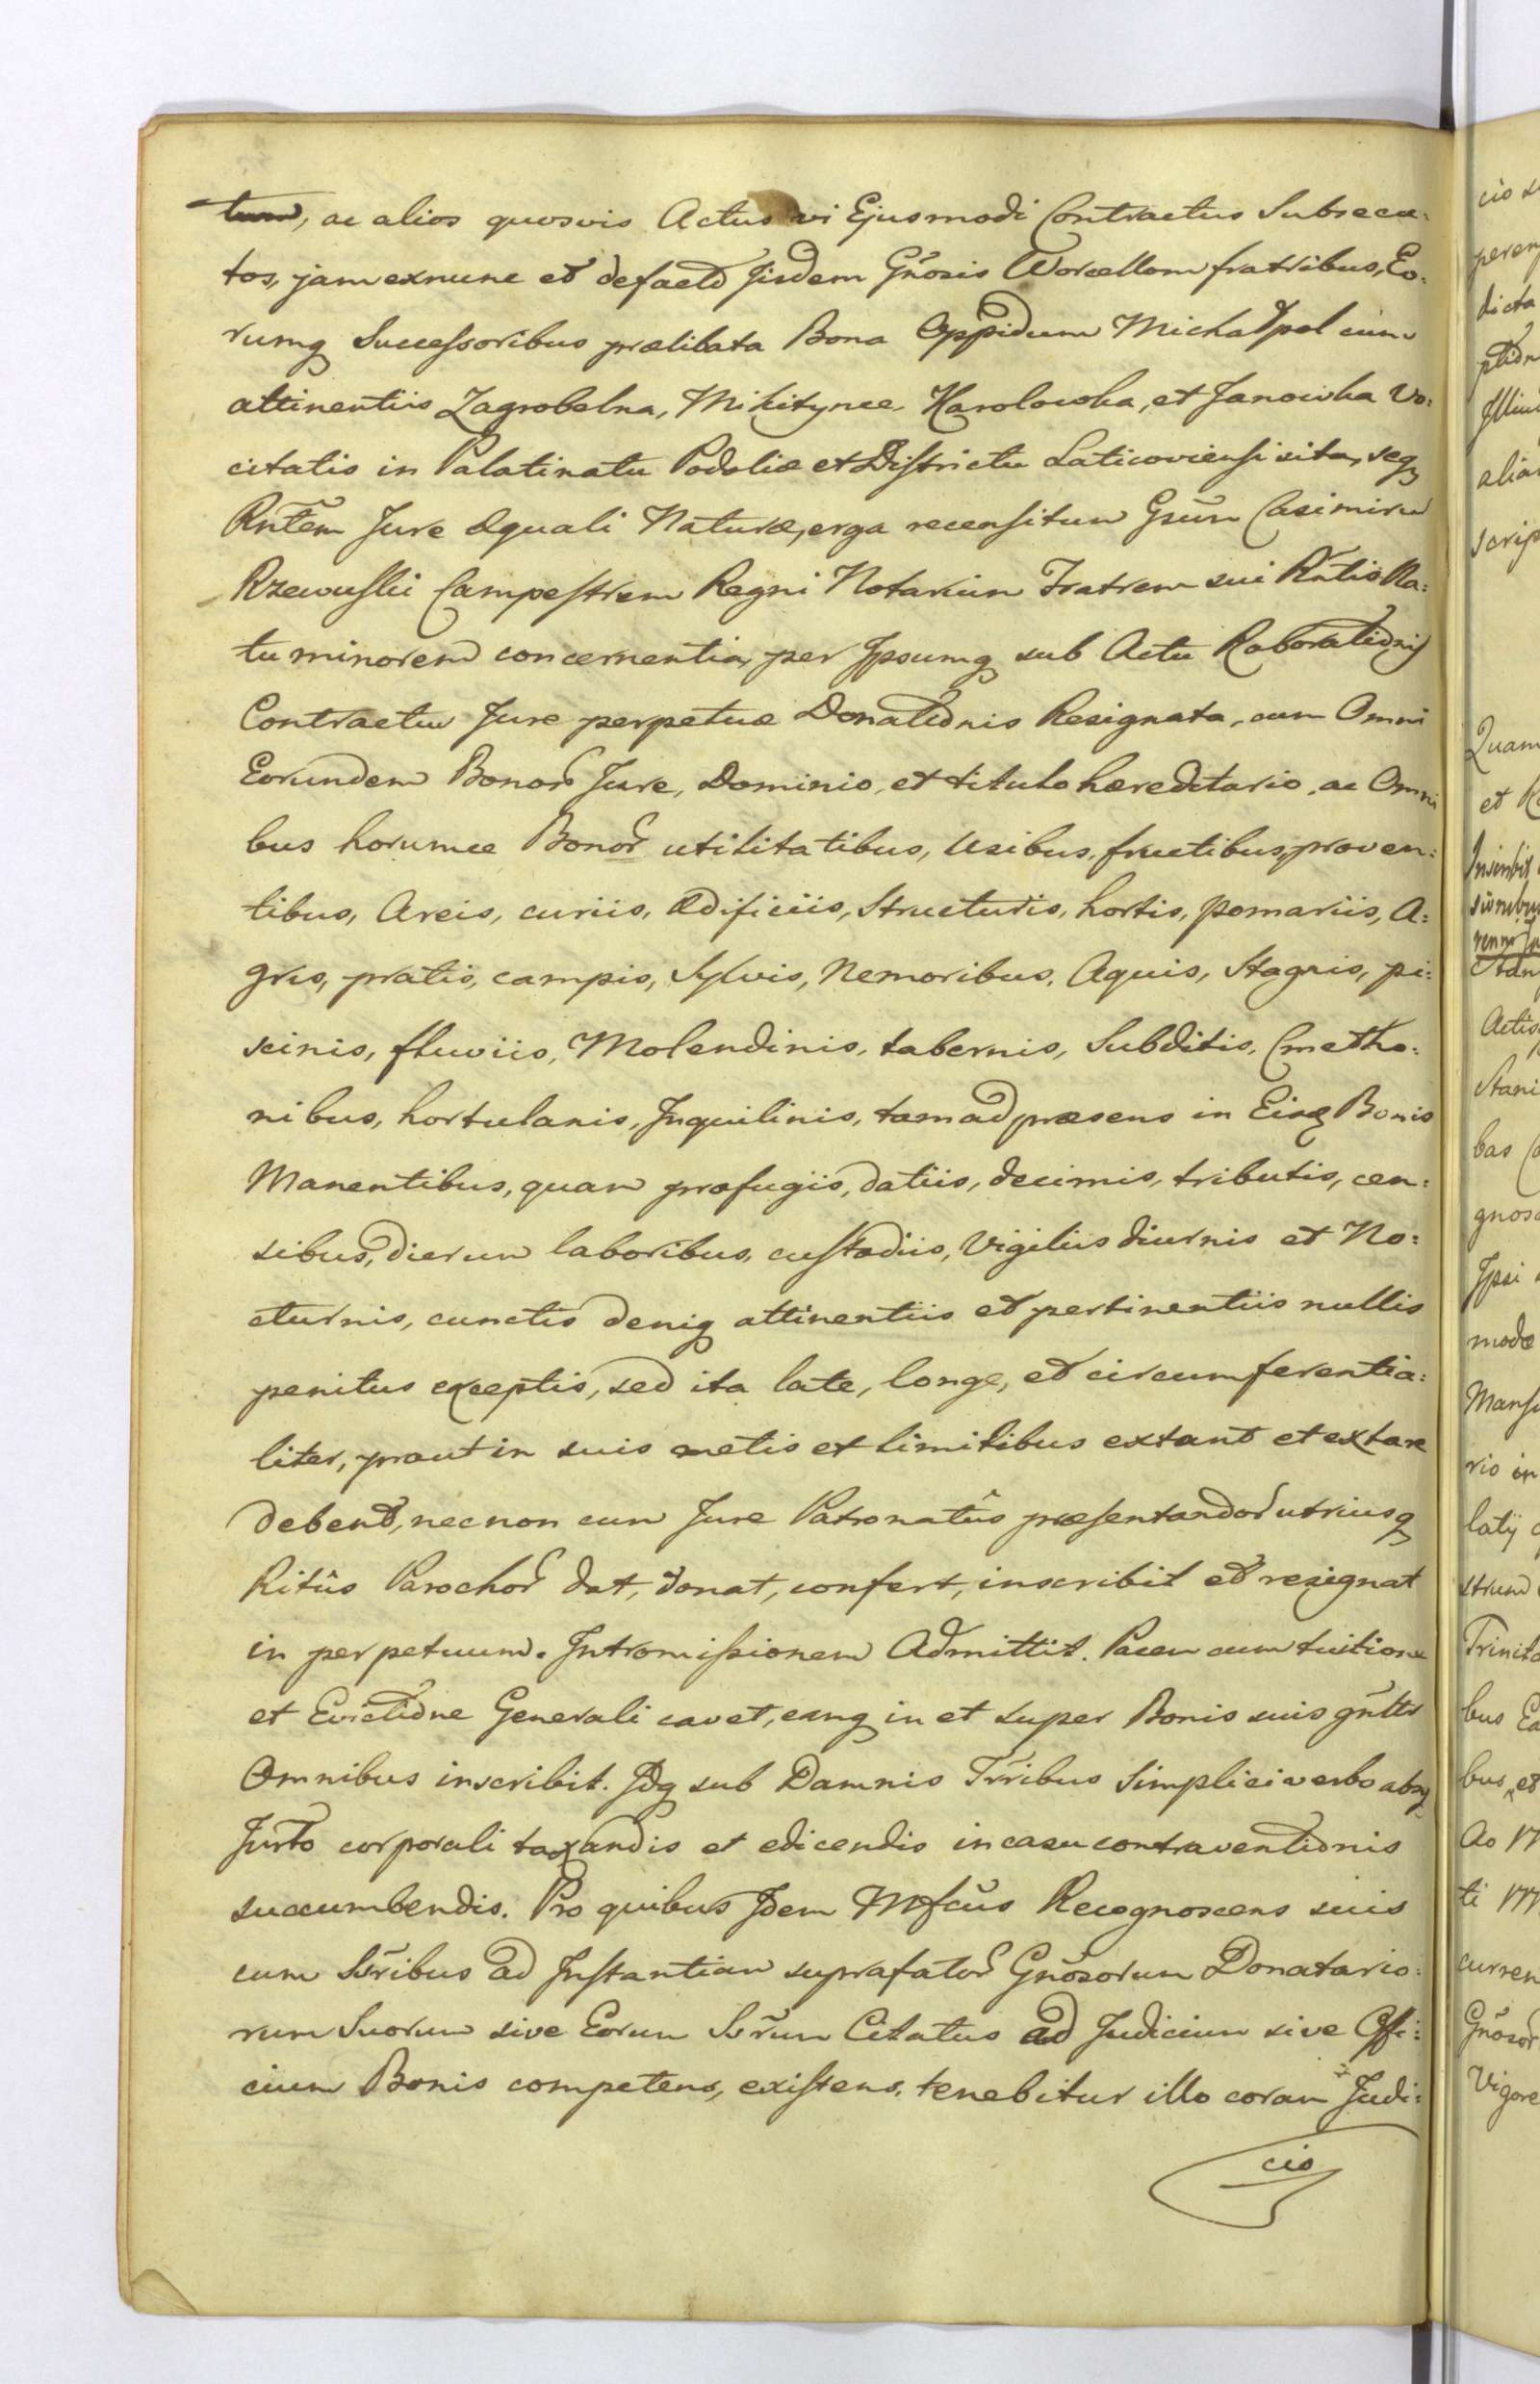 tum, ac alios quosvis Actus vi Ejusmodi Contractus Subsecu:
tos, jam exnunc et defacto Jisdem Gñosis Worcellom fratribus, Eo:
rumq Successoribus prælibata Bona Oppidum Michalpol cum
attinentiis Zagrobelna, Mikitynce, Karolowka, et Janowka Vo:
citatis in Palatinatu Podoliæ et Districtu Laticoviensi sita, seq
Rñtem Jure Æquali Naturæ, erga recensitum Gsũm Casimirum
Rzewuski Campestrem Regni Notarium Fratrem sui Rñtis Na:
tu minorem concernentia, per Ipsumq sub Actu Roborationis
Contractus Jure perpetuæ Donationis Resignata, cum Omni
Eorundem Bonor Jure, Dominio, et titulo hæreditario, ac Omni
bus horumce Bonor utilitatibus, Usibus, fructibus, proven:
tibus, Areis, curiis, Ædificiis, Structuris, hortis, pomariis, A:
gris, pratis, campis, Sylvis, Nemoribus, Aquis, Stagnis, pi:
scinis, fluviis, Molendinis, tabernis, Subditis, Cmetho:
nibus, hortulanis, Inquilinis, tam ad præsens in Eisq Bonis
Manentibus, quam profugiis, datiis, decimis, tributis, cen:
sibus, dierum laboribus, custodiis, Vigiliis diurnis et No:
cturnis, cunctis deniq attinentiis et pertinentiis nullis
penitus exceptis, sed ita late, longe, et circumferentia:
liter, prout in suis metis et limitibus extant et extare
debent, necnon cum Jure Patronatûs præsentandor utriusq
Ritûs Parochor dat, donat, confert, inscribit et resignat
in perpetuum. Intromissionem Admittit. Pacem cum tuitione
et Evictione Generali cavet, eamq in et super Bonis suis gñltr
Omnibus inscribit. Idq sub Damnis Trribus Simplici verbo absq
Jurto corporali taxandis et edicendis in casu contraventionis
succumbendis. Pro quibus Idem Mfcus Recognoscens suis
cum Ssribus ad Instantiam suprafator Gñosorum Donatario:
rum Suorum sive Eorum Ssrum Citatus ad Judicium sive Offi:
cium Bonis competens, existens, tenebitur illo coram Judi:
cio